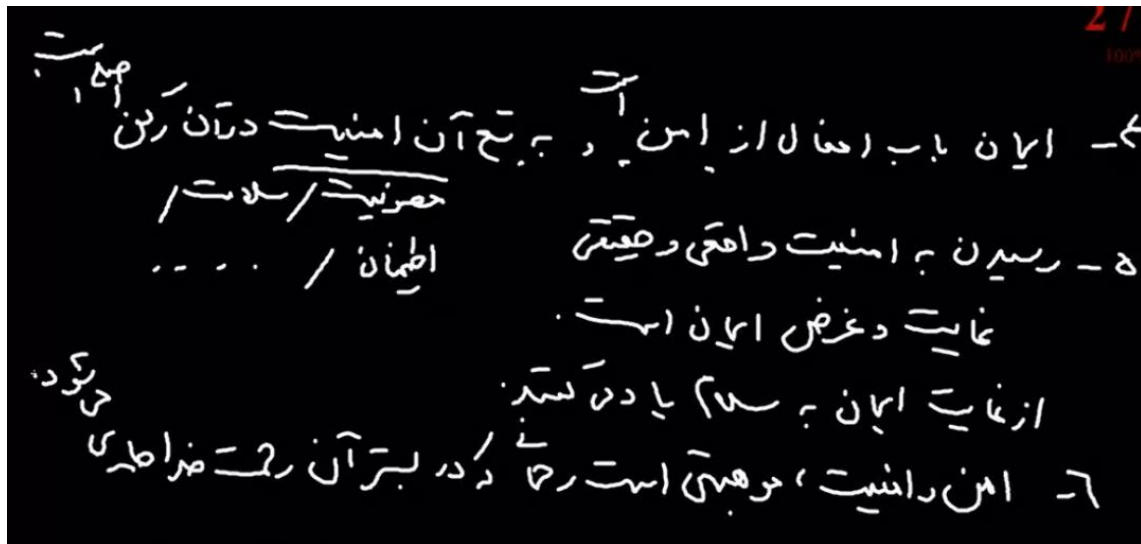 27
100%
۴- ایمان باب افعال از امن است و به تبع آن امنیت در آن رکن اصلی است.
مصونیت / سلامت /
اطمینان / ....
۵- رسیدن به امنیت واقعی و حقیقی
غایت و غرض ایمان است.
از غایت ایمان به سلام یاد می‌کنند.
۶- امن و امنیت، موهبتی است رحمانی که در بستر آن رحمت خدا جاری می‌شود.